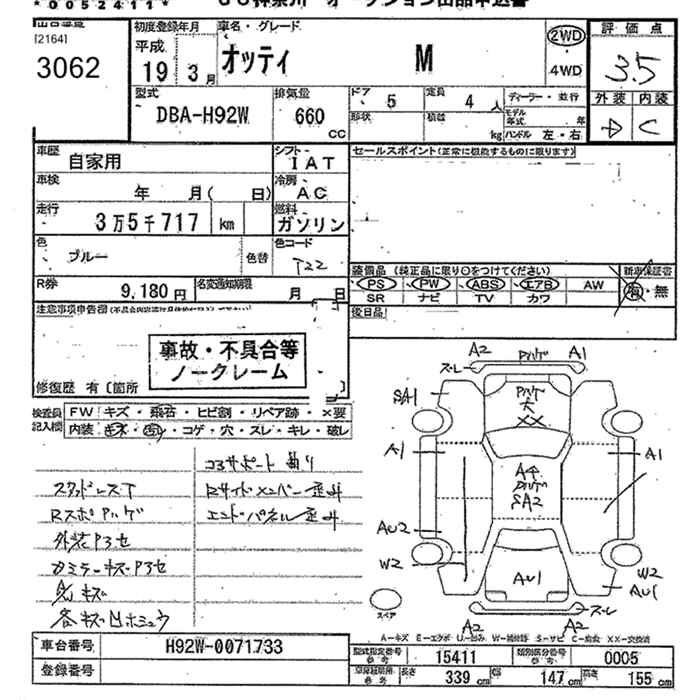 *0052411*
[2164]
3062
初度登録年月
平成
19年 3月
車名・グレード
オッティ M
2WD
4WD
評価点
3.5
外装 内装
D C
型式
DBA-H92W
排気量
660 CC
ドア 5
定員 4人
形状
積載 kg
ディーラー・並行
モデル年式 年
ハンドル 左・右
車歴
自家用
シフト
IAT
セールスポイント(正常に機能するものに限ります)
車検
年 月( 日)
冷房
AC
走行
3万5千717 km
燃料
ガソリン
色
ブルー
色替
色コード
T22
装備品 (純正品に限り○をつけてください)
PS PW ABS エアB AW
SR ナビ TV カワ
新車保証書
有・無
R券
9,180円
名変通知期限
月 日
後日品
注意事項申告欄
事故・不具合等
ノークレーム
修復歴 有〔箇所 〕
検査員記入欄
FW キズ・飛石・ヒビ割・リペア跡・×要
内装 キズ・コゲ・穴・スレ・キレ・破レ
コアサポート曲り
スタッドレスT
Rサイドメンバー歪み
RスポPハゲ
エンドパネル歪み
外装Pヨセ
キズPヨセ
キズ
各キズ凹ホシュウ
A2 Pハゲ A1
スレ
SA1
Pハゲ
大
XX
A1
A1
A4
Pハゲ
SA2
AU2
W2
AU1
W2
AU1
スレ
A2 A2
スペア
A-キズ E-エクボ U-凹み W-補修跡 S-サビ C-腐食 XX-交換済
車台番号
H92W-0071733
登録番号
型式指定番号 参考 15411
類別区分番号 参考 0005
長さ 339 cm
幅 147 cm
高さ 155 cm